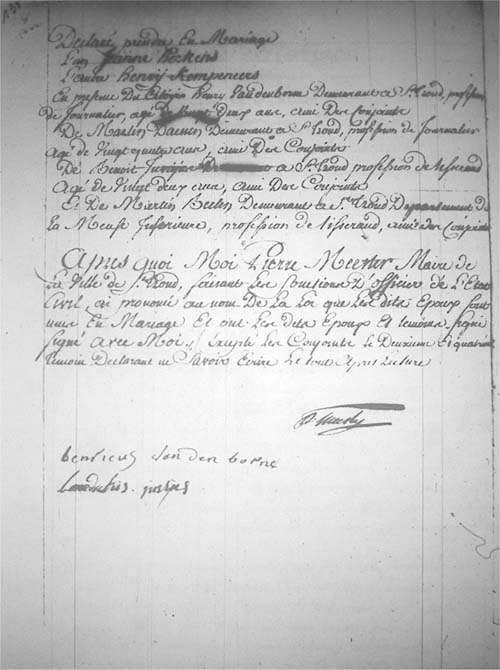 133
Declaré prendre En Mariage
L'un Jeanne Reckens
L'autre Henry Kempeneers
En presence Du Citoyen Henry Vandenborne Demeurant a St. Trond, profession
de Journalier, agé de deux ans, ami Des conjoints
De Martin Daenen Demeurant a St. Trond, profession de Journalier
Agé de Vingt quatre ans, ami Des Conjoints
De Benoit a St. Trond profession de tisserand
Agé de Vingt deux ans, ami Des Conjoints
Et De Martin Demeurant a St. Trond Departement de
la Meuse Inferieure, profession de tisserand, ami des conjoints
Apres quoi Moi Pierre Meester Maire de
la Ville de St. Trond, faisant les fonctions d'officier de L'Etat
Civil, ai prononcé au nom De La Loi que Les dits Epoux sont
unis En Mariage Et ont les dits Epoux Et temoins signé
signé avec Moi Excepté les Conjoints le Deuxieme Et quatrieme
temoin Declarant ne Savoir Ecrire Le tout Apres Lecture
henricus van den borne